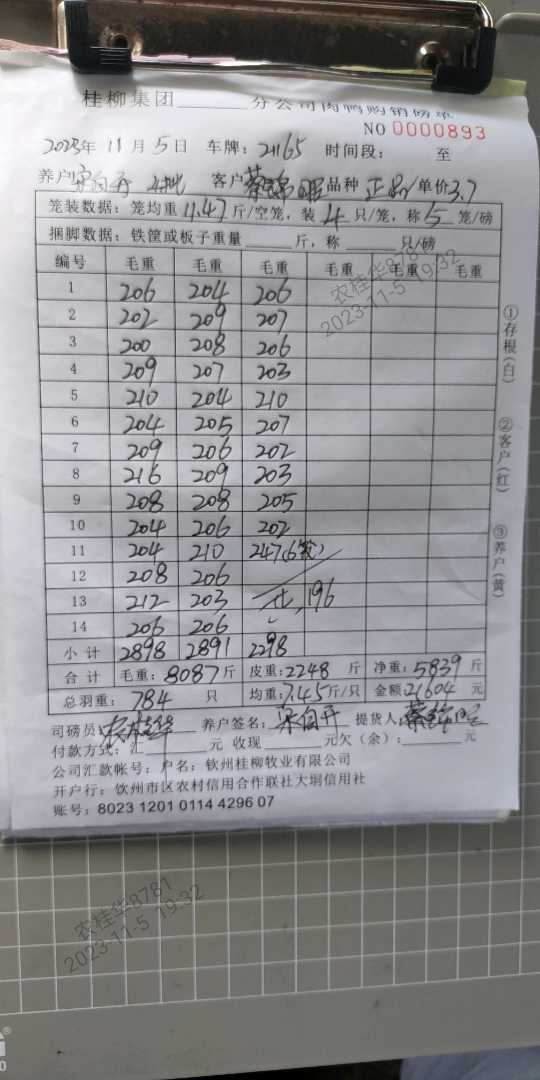 桂柳集团______分公司肉鸭购销磅单
NO 0000893
2023年 11月 5日 车牌: 21165 时间段: 至
养户 客户 品种 正品 单价3.7
笼装数据: 笼均重 11.47 斤/空笼, 装 4 只/笼, 称 5 笼/磅
捆脚数据: 铁筐或板子重量______斤, 称______只/磅
编号 毛重 毛重 毛重 毛重 毛重 毛重
1 206 204 206
2 202 209 207
3 200 208 206
4 209 207 203
5 210 204 210
6 204 205 207
7 209 206 202
8 216 209 203
9 208 208 205
10 204 206 202
11 204 210 247(6笼)
12 208 206
13 212 203 196
14 206 206
小计 2898 2891 2298
合计 毛重: 8087斤 皮重: 2248 斤 净重: 5839 斤
总羽重: 784 只 均重: 7.45斤/只 金额: 21604 元
司磅员: 农桂华 养户签名: 提货人:
付款方式: 汇______元 收现______元欠(余): ______元
公司汇款帐号: 户名: 钦州桂柳牧业有限公司
开户行: 钦州市区农村信用合作联社大垌信用社
账号: 8023 1201 0114 4296 07
①存根(白)
②客户(红)
③养户(黄)
农桂华8781
2023-11-5 19:32
农桂华8781
2023-11-5 19:32